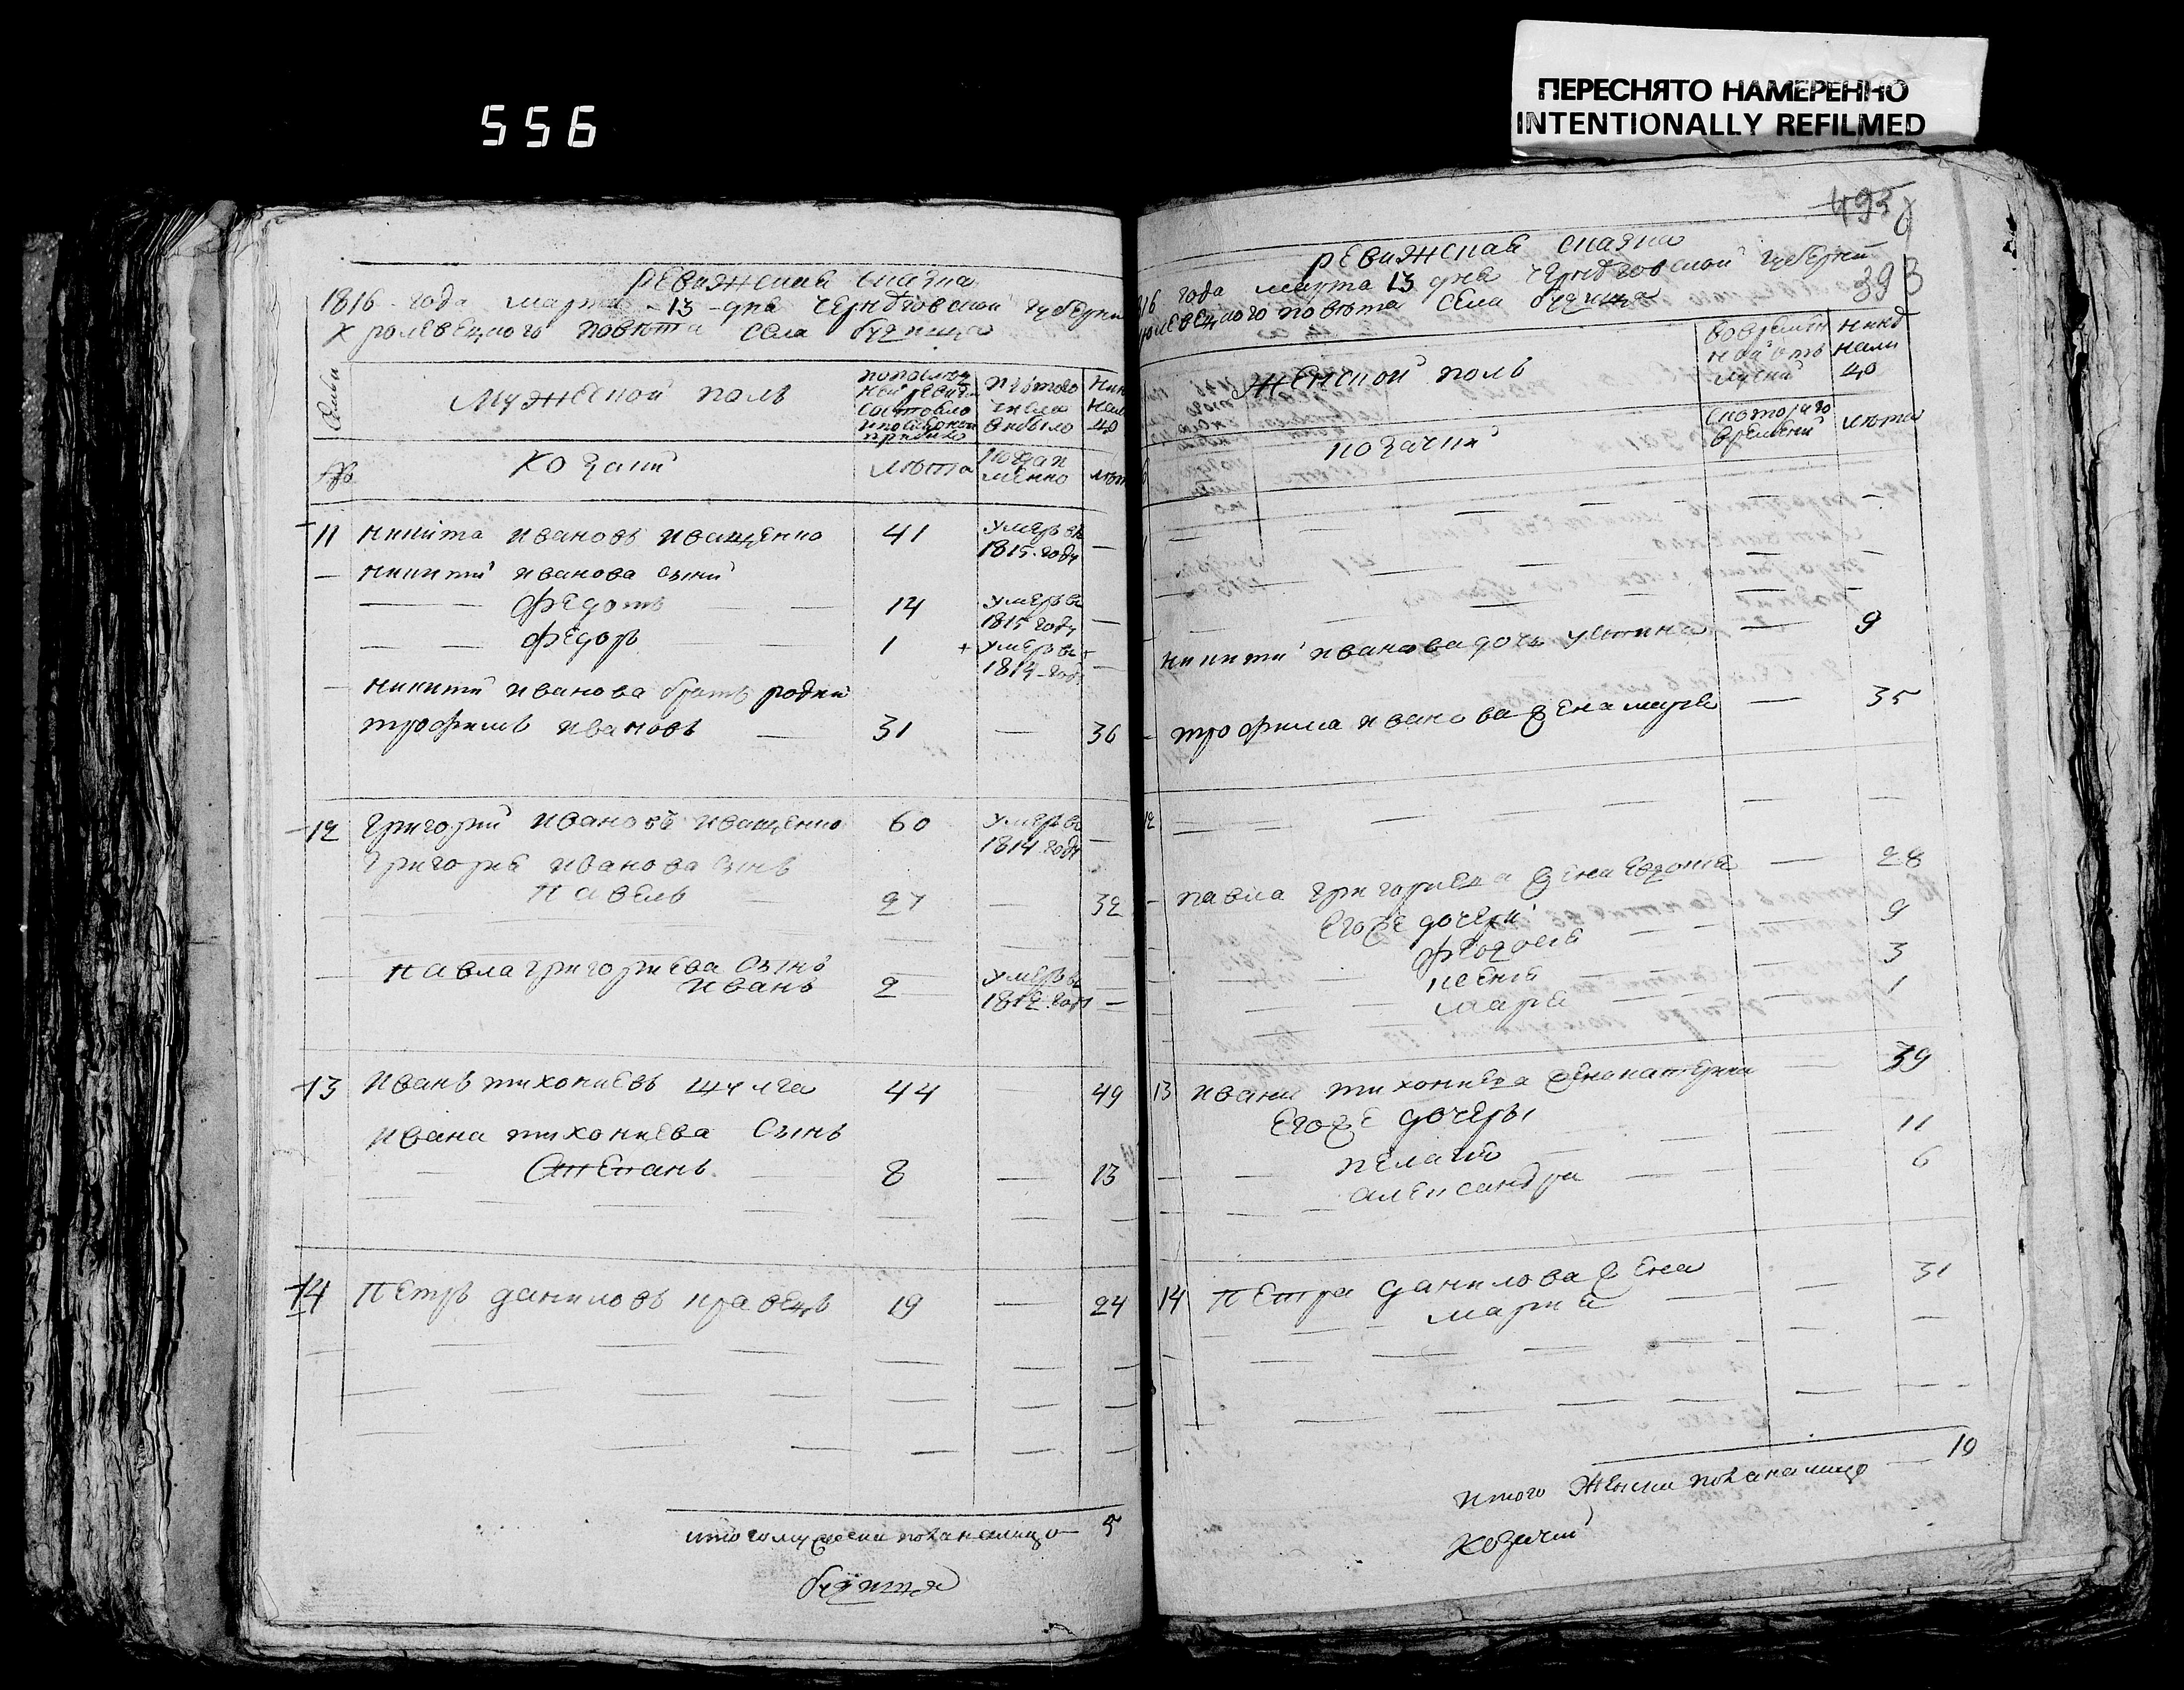 556
ПЕРЕСНЯТО НАМЕРЕННО
INTENTIONALLY REFILMED
ревижская сказка
1816 года марта 13 дня черниговской губернии
кролевецкого повета села
Мужеской полъ
по последней ревизии состояло и после оной прибыло
изъ того числа выбыло
ныне налицо
семьи
козаки
лета
когда именно
лет
11 никита ивановъ иващенко 41 умеръ въ 1815 году —
никиты иванова сыни
федотъ 14 умеръ въ 1815 году —
федоръ 1 умеръ въ 1814 году —
никиты иванова братъ родни
трофимъ ивановъ 31 — 36
12 григорий ивановъ иващенко 60 умеръ въ 1814 году —
григория иванова сынъ
павелъ 27 — 32
павла григориева сынъ
иванъ 2 умеръ въ 1812 году —
13 иванъ тихониевъ шулга 44 49
ивана тихониева сынъ
степанъ 8 — 13
14 петръ даниловъ кравецъ 19 — 24
итого мужеска пола налицо 5
493
393
ревижская сказка
1816 года марта 13 дня черниговской губернии
кролевецкого повета села
женской полъ
во временной отлучки
ныне налицо
козачки
с которого времени
лета
никиты иванова дочь устина — 9
трофима иванова жена марфа — 35
12
павла григориева жена евдокия — 28
его же дочери
феодосия 9
ксения 3
мария 1
13 ивана тихониева жена катерина 39
его же дочеры
пелагия 11
александра 6
14 петра данилова жена
мария 31
итого женска пола налицо 10
козачки